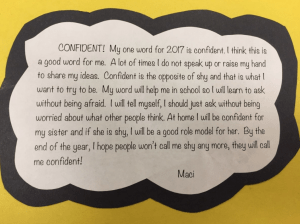 CONFIDENT! My one word for 2017 is confident. I think this is
a good word for me. A lot of times I do not speak up or raise my hand
to share my ideas. Confident is the opposite of shy and that is what I
want to try to be. My word will help me in school so I will learn to ask
without being afraid. I will tell myself, I should just ask without being
worried about what other people think. At home I will be confident for
my sister and if she is shy, I will be a good role model for her. By the
end of the year, I hope people won't call me shy any more, they will call
me confident!
Maci